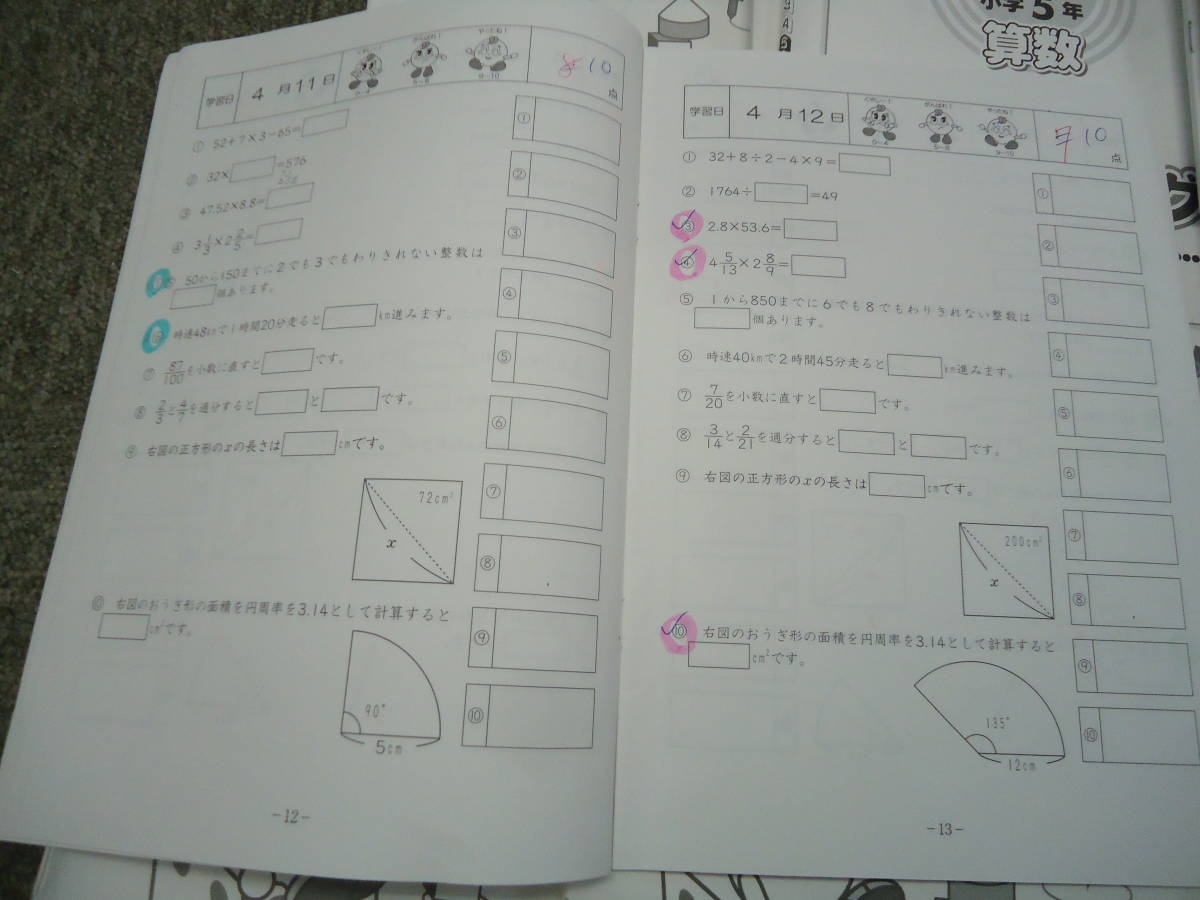 小学5年
算数
学習日 4月11日
くやしい!
がんばれ!
やったね!
0〜4
5〜8
9〜10
10
点
① 52+7×3−65=
② 32×□=576
③ 47.52×8.8=
④ 3 1/3×2 2/5=
50から150までに2でも3でもわりきれない整数は
□個あります。
時速48kmで1時間20分走ると□km進みます。
⑦ 87/100を小数に直すと□です。
⑧ 2/3と4/7を通分すると□と□です。
⑨ 右図の正方形のxの長さは□cmです。
72cm²
x
⑩ 右図のおうぎ形の面積を円周率を3.14として計算すると
□cm²です。
90°
5cm
①
②
③
④
⑤
⑥
⑦
⑧
⑨
⑩
-12-
学習日 4月12日
くやしい!
がんばれ!
やったね!
0〜4
5〜8
9〜10
10
点
① 32+8÷2−4×9=
② 1764÷□=49
③ 2.8×53.6=
④ 4 5/13×2 8/9=
⑤ 1から850までに6でも8でもわりきれない整数は
□個あります。
⑥ 時速40kmで2時間45分走ると□km進みます。
⑦ 7/20を小数に直すと□です。
⑧ 3/14と2/21を通分すると□と□です。
⑨ 右図の正方形のxの長さは□cmです。
200cm²
x
⑩ 右図のおうぎ形の面積を円周率を3.14として計算すると
□cm²です。
135°
12cm
①
②
③
④
⑤
⑥
⑦
⑧
⑨
⑩
-13-